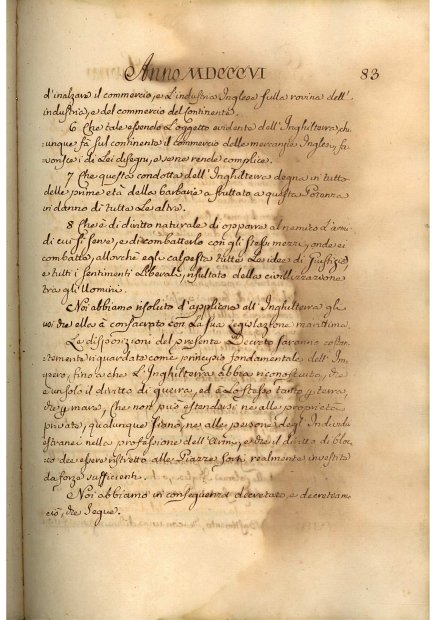 Anno MDCCCVI 83
d'inalzare il commercio, e l'industria Inglese sulla rovina dell'
industria, e del commercio del Continente.
6 Che tale essendo l'oggetto evidente dell'Inghilterra, chi
unque fà sul continente il commercio delle mercanzie Inglesi, fa
vorisce i di Lei disegni, e sene rende complice.
7 Che questa condotta dell'Inghilterra degna in tutto
delle prime età della barbarie a fruttato a questa Potenza
in danno di tutte Le altre.
8 Che è di diritto naturale di opporre al nemico L'armi
di cui si serve, e di combatterlo con gli stessi mezzi, onde ei
combatte, allorchè egli calpesta tutte Le idee di Giustizia,
e tutti i sentimenti Liberali, risultato della civilizzazione
tra gli Uomini.
Noi abbiamo risoluto d'applicare all'Inghilterra gli
usi che ella à consacrato con La sua Legislazione marittima.
Le disposizioni del presente Decreto saranno costan
temente riguardate come principio fondamentale dell'Im
pero, fino a che L'Inghilterra abbia riconosciuto, che
è un solo il diritto di guerra, ed è Lo stesso tanto p terra,
che p mare, che non può estendersi ne alle proprietà
private, qualunque siano, ne alle persone degl'Individui
estranei nella professione dell'Armi, e che il diritto di bloc
co dee essere ristretto alle Piazze forti realmente investite
da forze sufficienti.
Noi abbiamo in conseguenza decretato, e decretiamo
ciò, che segue.